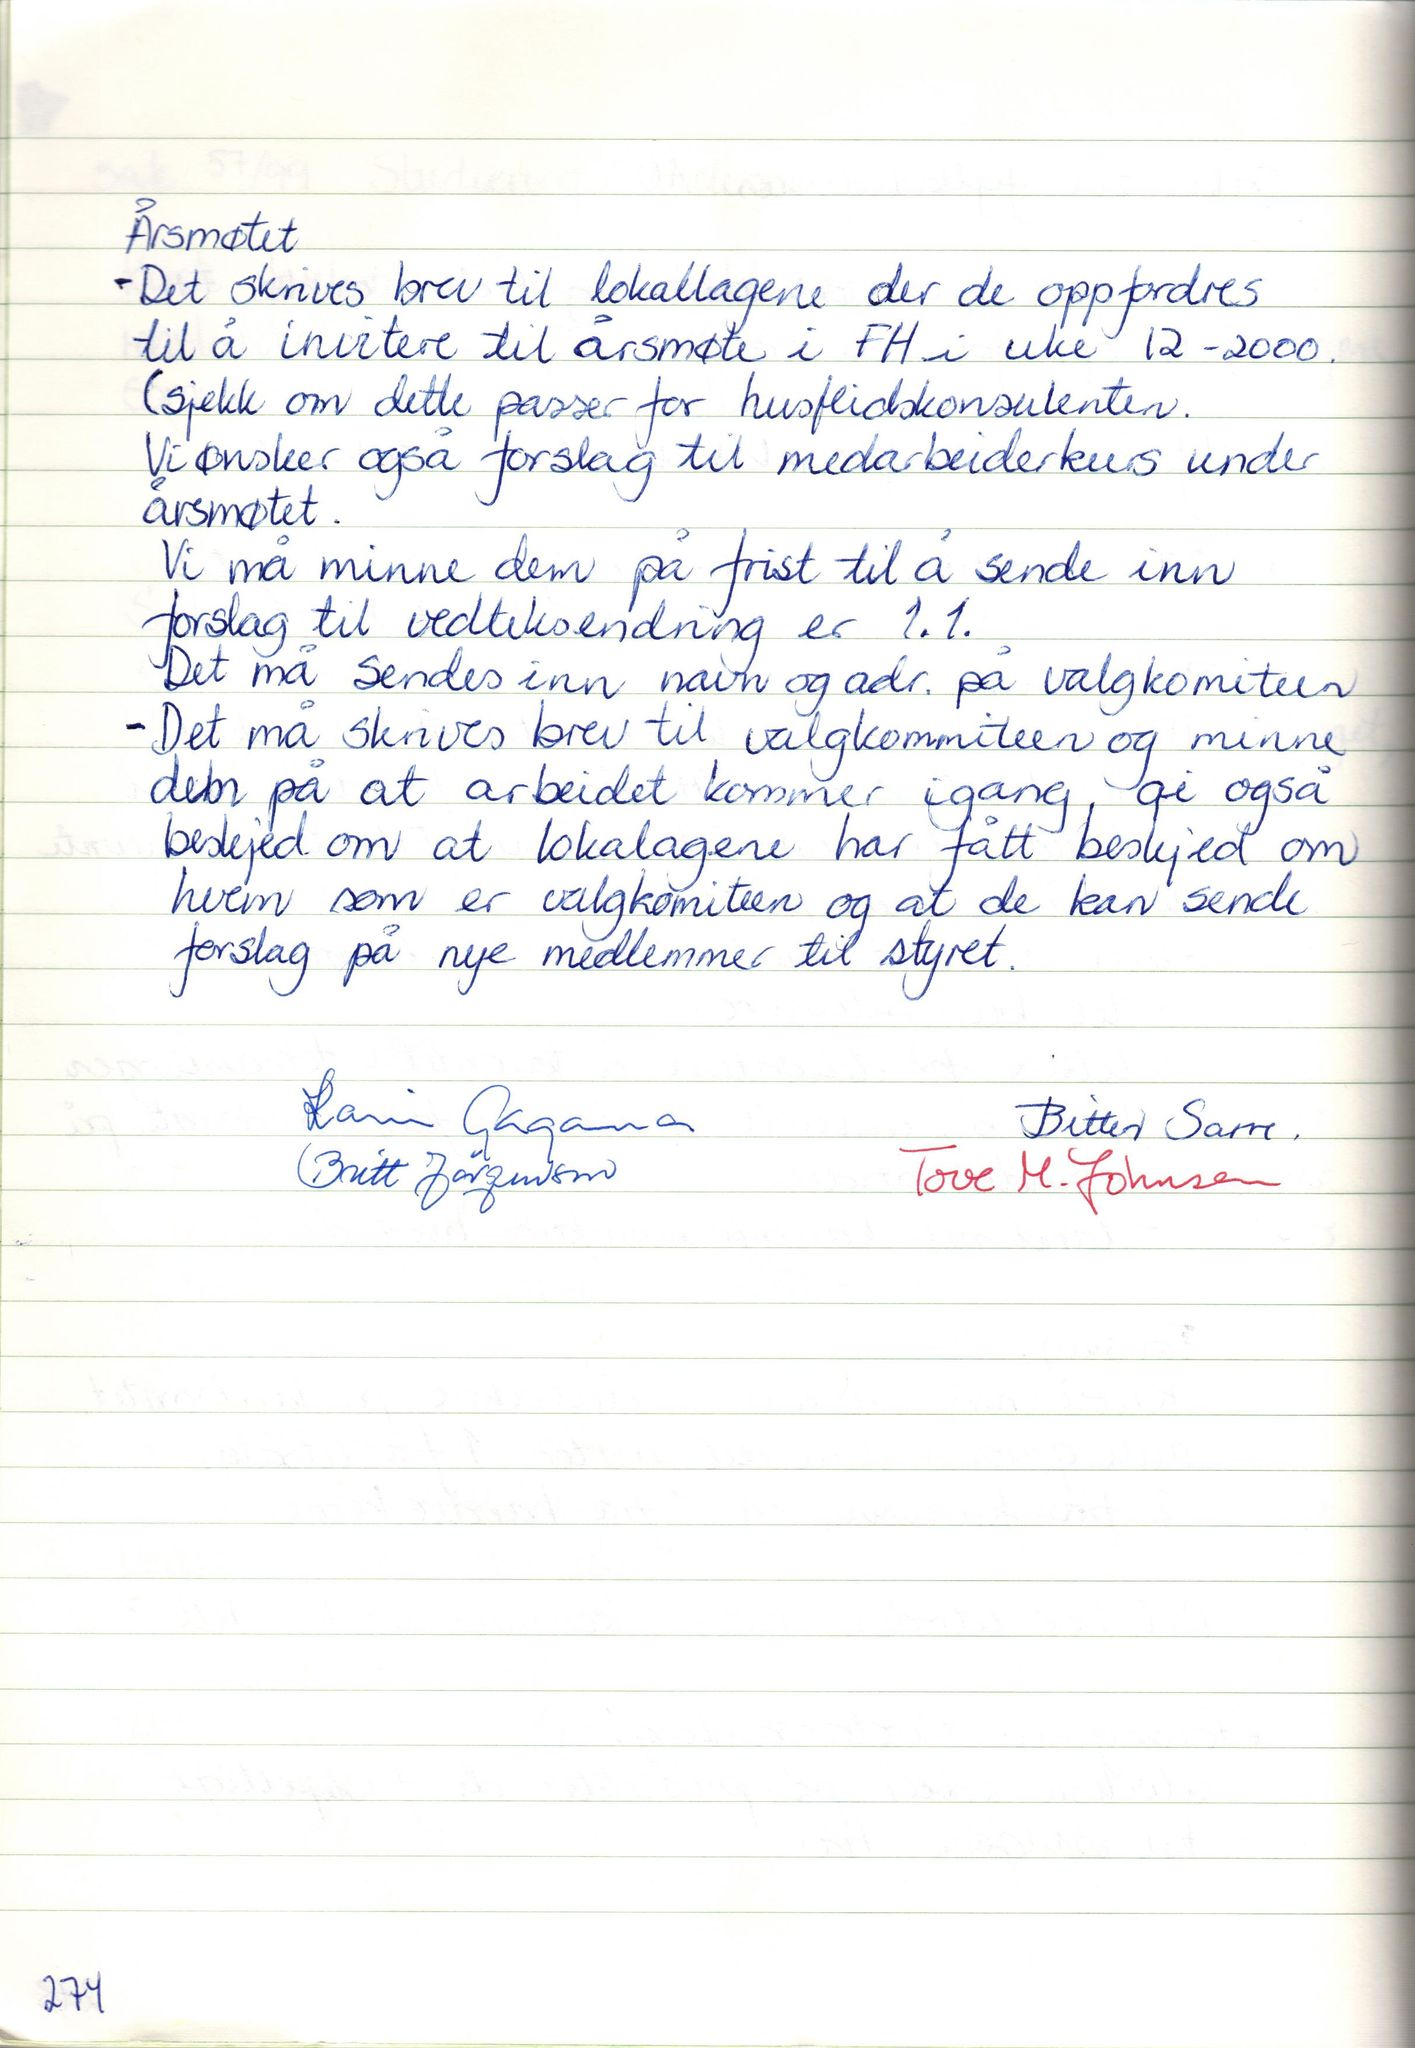 Årsmøtet
- Det skrives brev til lokallagene der de oppfordres
til å invitere til årsmøte i FH i uke 12-2000.
(sjekk om dette passer for husflidskonsulenten.
Vi ønsker også forslag til medarbeiderkurs under
årsmøtet.
Vi må minne dem på frist til å sende inn
forslag til vedteksendring er 1.1.
Det må sendes inn navn og adr. på valgkomiteen
- Det må skrives brev til valgkommiteen og minne
dem på at arbeidet kommer igang, gi også
beskjed om at lokalagene har fått beskjed om
hvem som er valgkomiteen og at de kan sende
forslag på nye medlemmer til styret.
Karin
Bitten Sarre.
Britt
Tove M. Johnsen
274